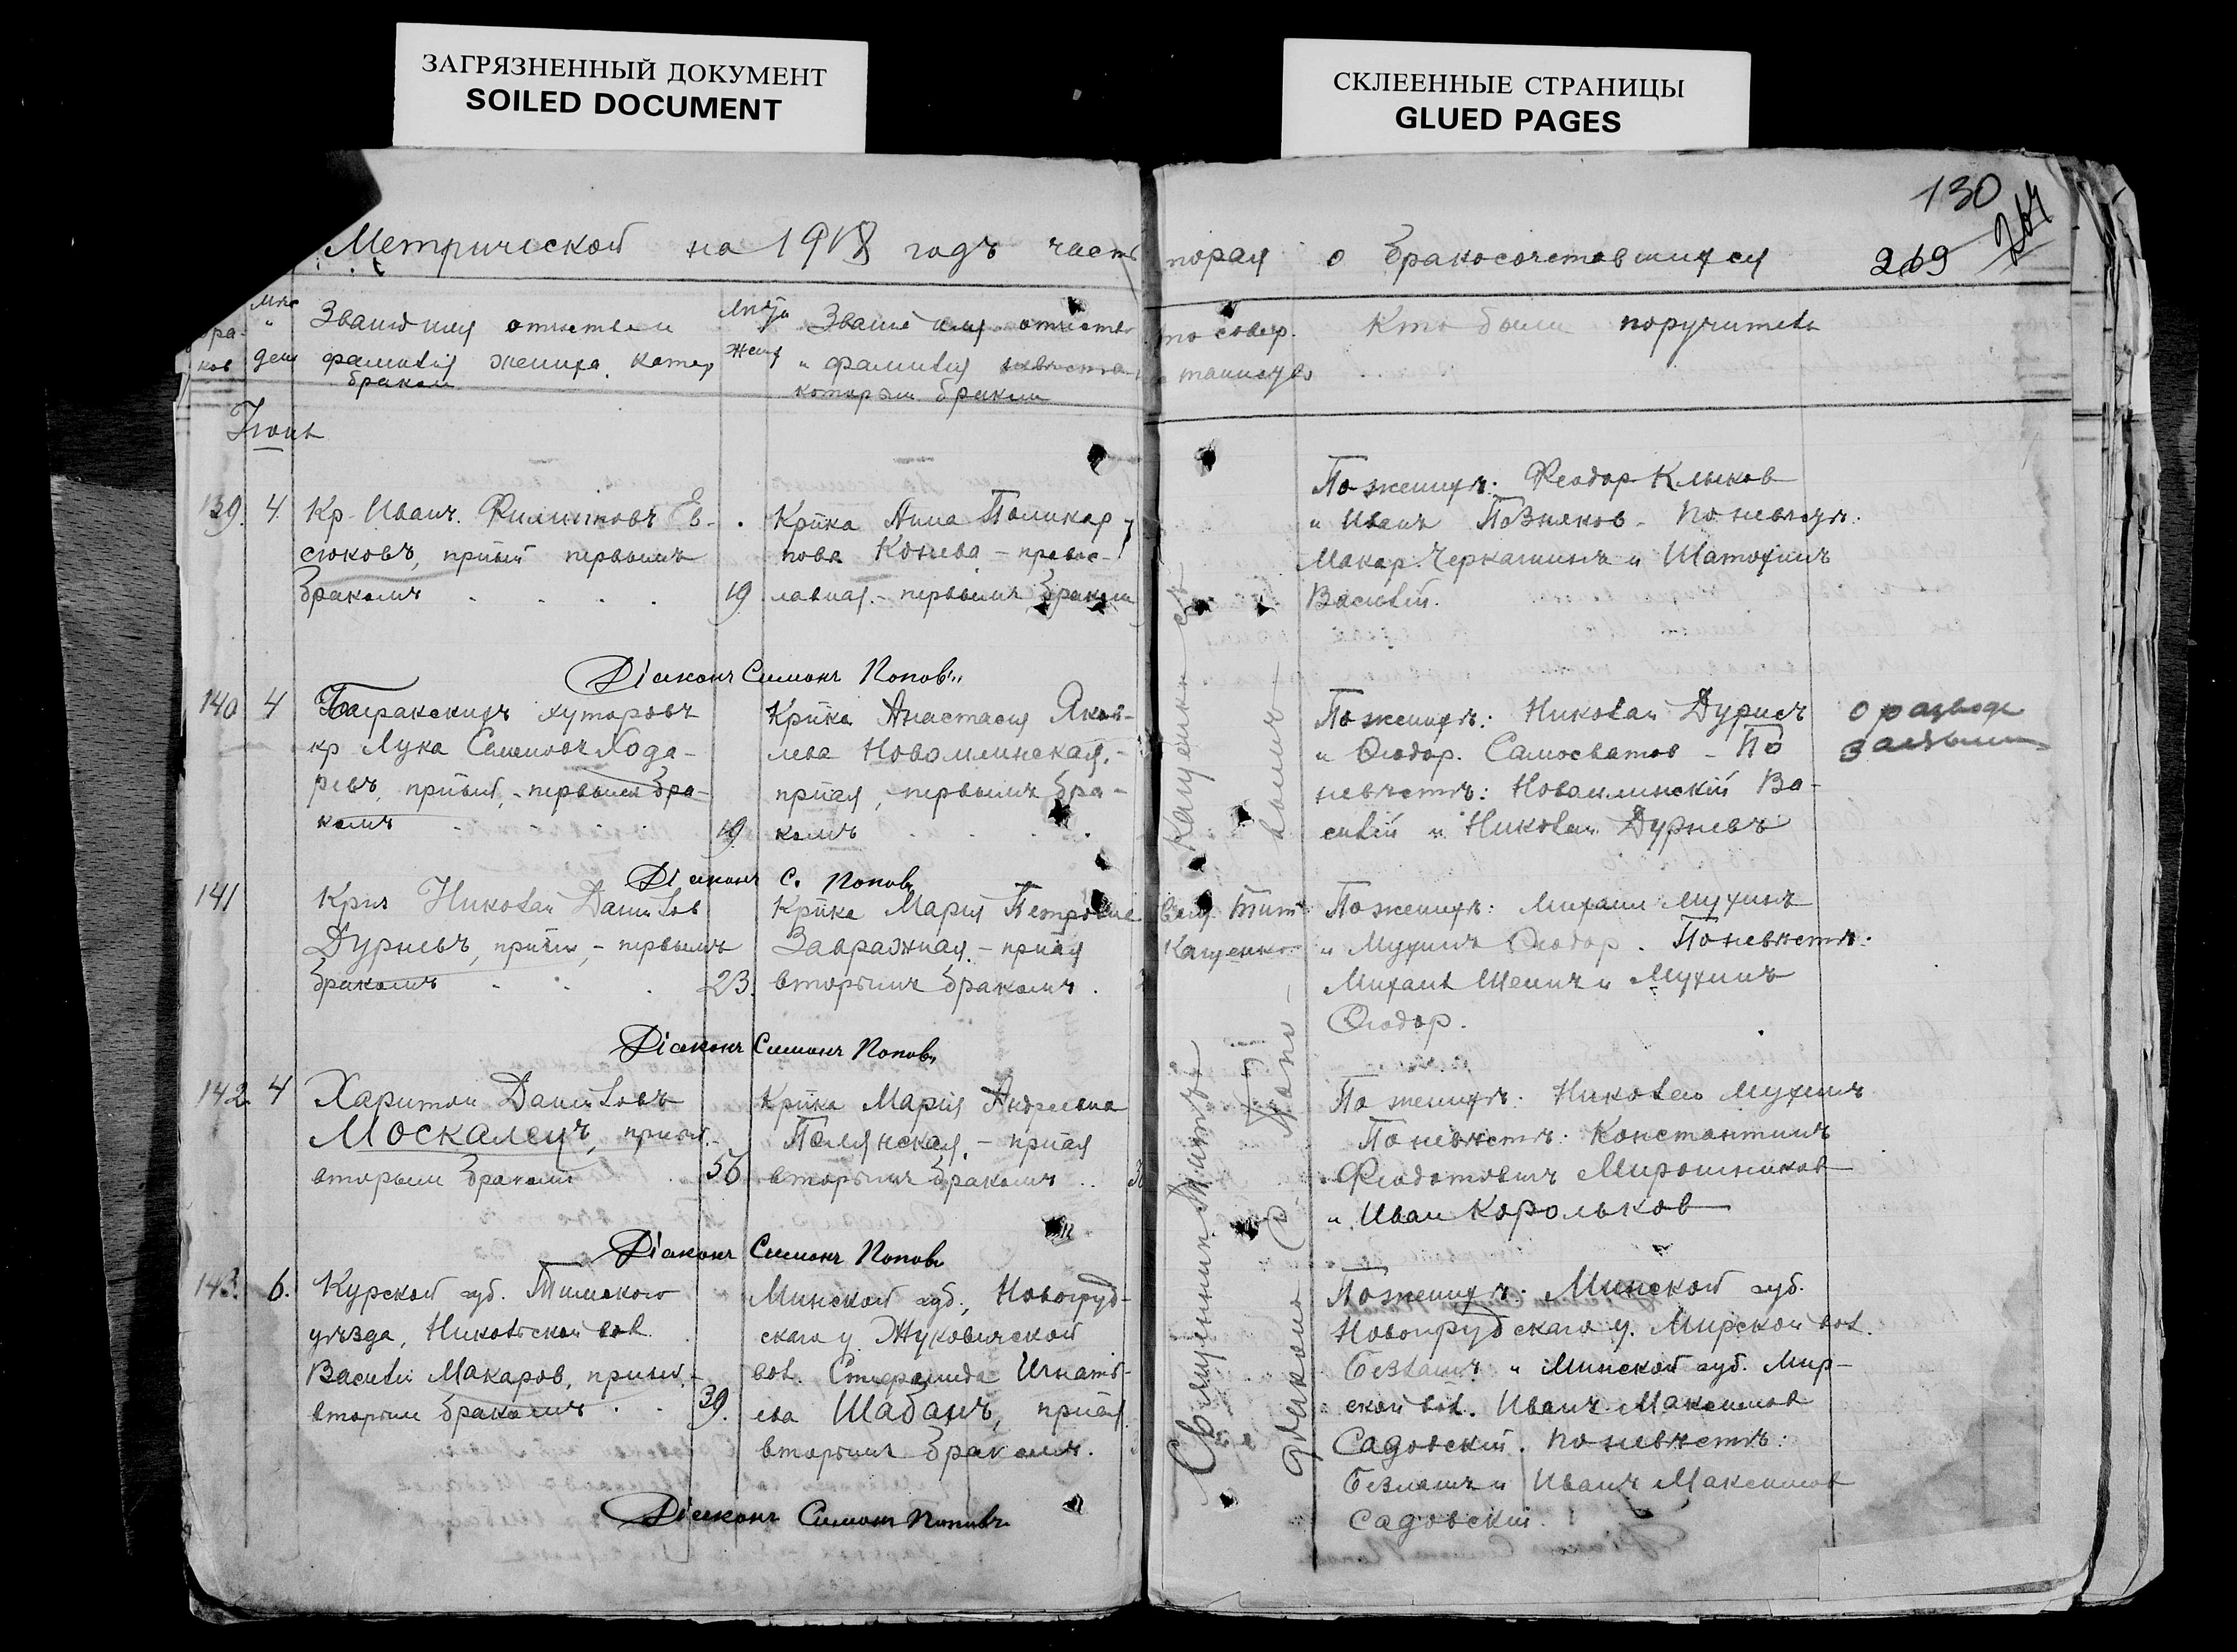 ЗАГРЯЗНЕННЫЙ ДОКУМЕНТ
SOILED DOCUMENT
СКЛЕЕННЫЕ СТРАНИЦЫ
GLUED PAGES
130
264
269
Метрической на 1918 годъ часть вторая о бракосочетавшихся
бра-
ков
дни
Званіе имя отчество и
фамилія жениха, котор
браком
Лѣта
жених
Званіе имя отчество
и фамилія невѣсты
которым браком
то совер.
таинство
Кто были поручители
Іюнь
139. 4. Кр. Иванъ Филиповъ Ев-
сюковъ, првый первымъ
бракомъ 19
Кр꙯ка Анна Поликар-
пова Конева - правос-
лавная - первымъ браком
По женихѣ: Феодор Клыков
и Иванъ Позняков - По невѣстѣ:
Макар Черкашинъ и Шатохинъ
Василій.
Діаконъ Симонъ Поповъ
140 4 хуторовъ
кр Лука Семеновъ Хода-
ревъ, првый, - первымъ бра-
комъ 19
Кр꙯ка Анастасія Яков-
лева Новомлинская, -
прная, первымъ бра-
комъ
По женихѣ: Николай Дурневъ
и Ѳеодор. Самосватов - По
невѣстѣ: Новомлинскій Ва-
силій и Николай Дурневъ
о разводе
Діаконъ С. Поповъ
141 Кр꙯нъ Николай Данилов
Дурневъ, прный, - первымъ
бракомъ 23.
Кр꙯ка Марія Петровна
Завражная - прная
вторымъ бракомъ.
Свящ. Тит
Кащенко
По женихѣ: Михаил Мухинъ
и Мухинъ Ѳеодор. По невѣстѣ:
Михаил Шеинъ и Мухинъ
Ѳеодор.
Діаконъ Симонъ Поповъ
142 4 Харитон Даниловъ
Москалецъ, прный.-
вторым браком 56
Кр꙯ка Марія Андреевна
Полянская, - прная
вторымъ бракомъ
По женихѣ: Николай Мухинъ
По невѣстѣ: Константинъ
Феодотовичъ Мирошников
и Иван Корольков
Діаконъ Симонъ Поповъ
143. 6. Курской губ. Тимского
уѣзда, Никольской вол.
Василій Макаров, прный, -
вторым бракомъ 39.
Минской губ., Новогруд-
скаго у. Жуковичской
вол. Стефанида Игнатъ-
ева Шабанъ, прная
вторымъ бракомъ.
По женихѣ: Минской губ.
Новогрудскаго у. Мирской вол.
и Минской губ. Мир-
ской вол. Иванъ Максимов
Садовскій. По невѣстѣ:
и Иванъ Максимов
Садовскій.
Діаконъ Симонъ Поповъ
Священник Кащенко съ
Діаконо С. Попо вымъ